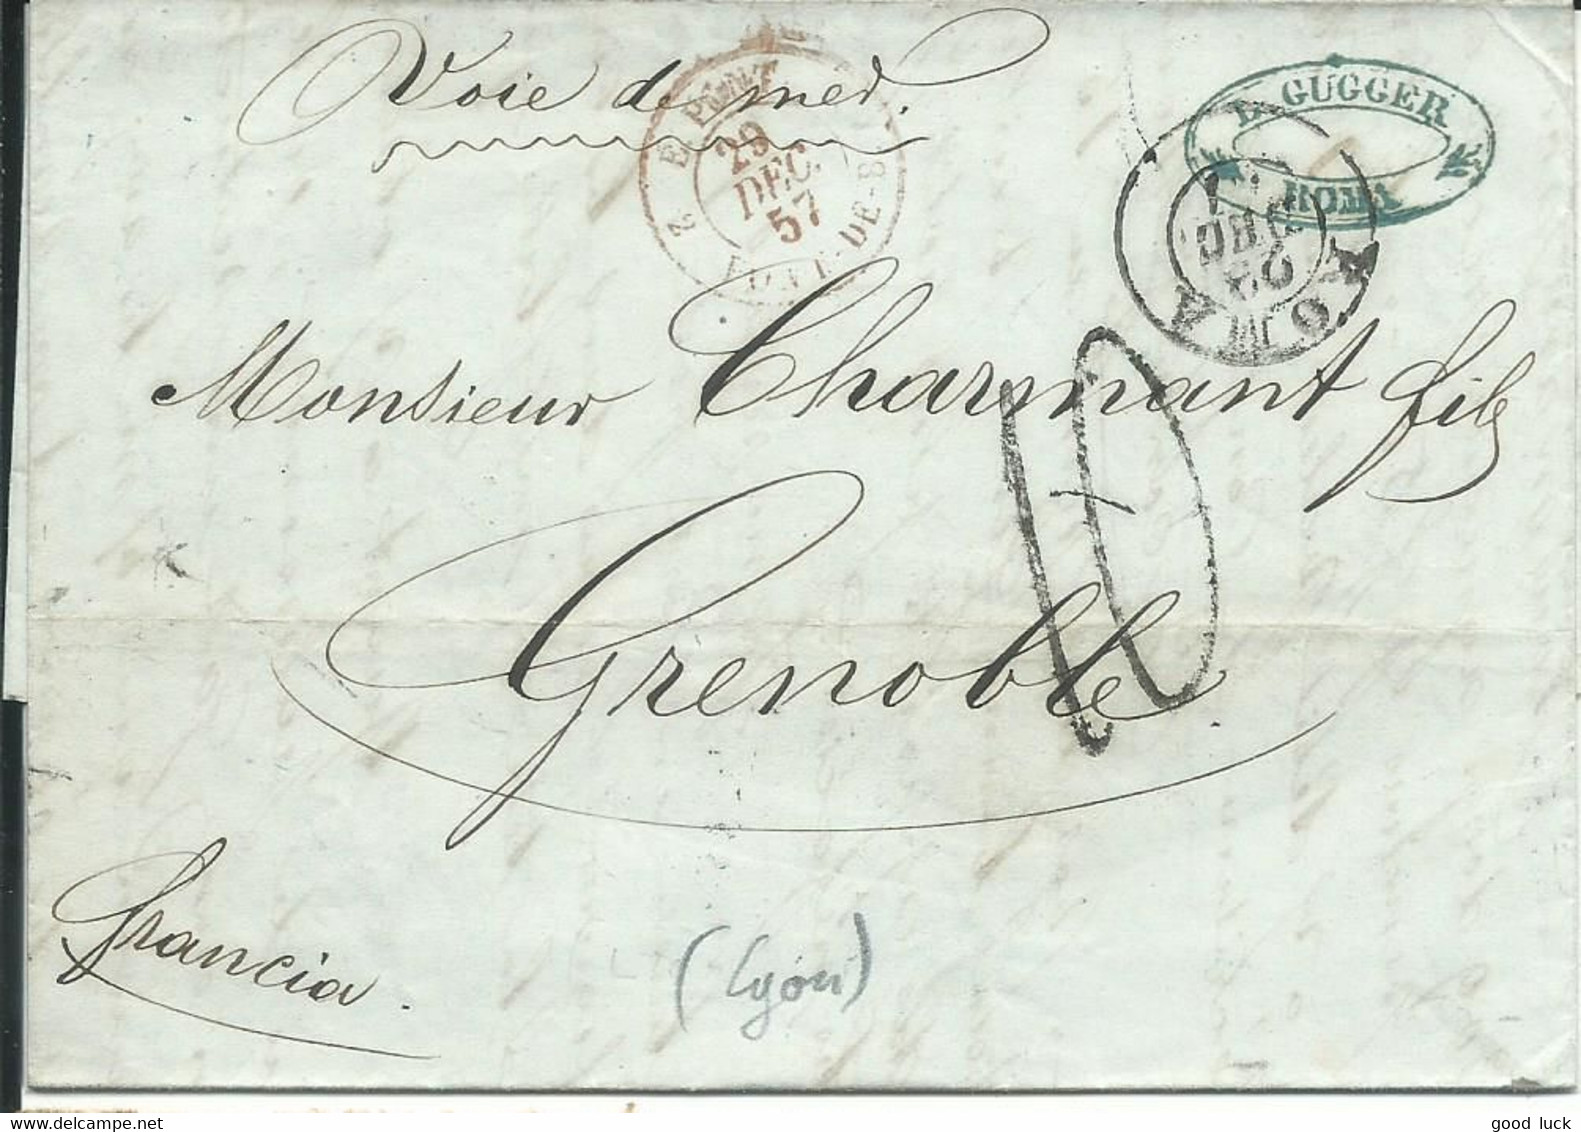 Voie de mer.
E. PONT
29
DEC.
57
2
PONT-DE-B
B. GUGGER
ROMA
ROMA
DEC
Monsieur Charmant fils
10
Grenoble
francia.
(Lyon)
www.delcampe.net
good_luck